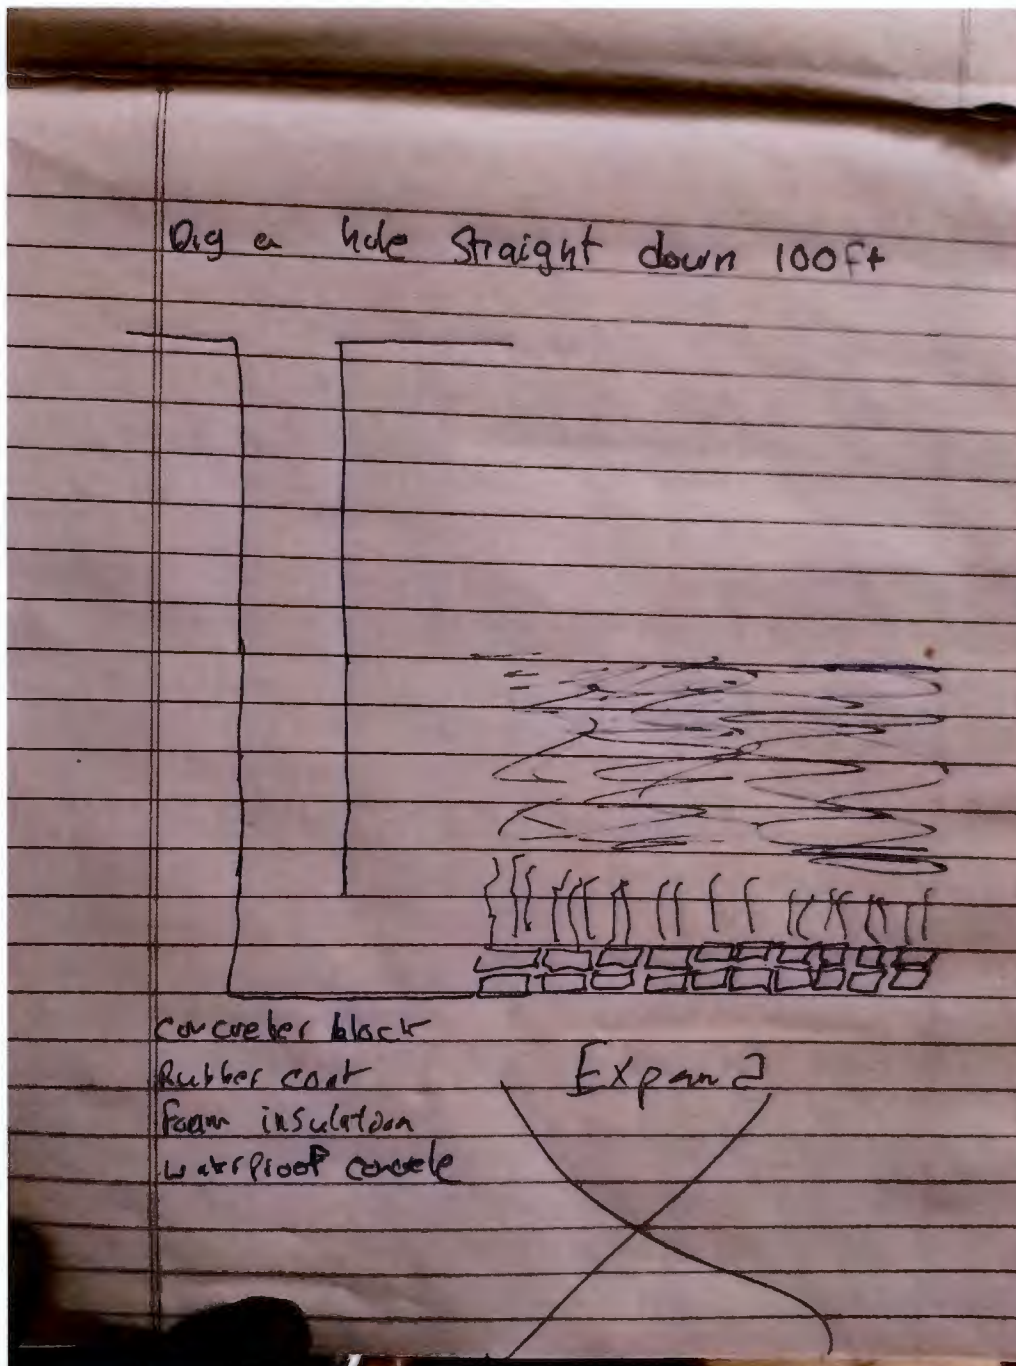 Dig a hole straight down 100ft
concreter block
Expand
Rubber coat
foam insulation
waterproof concele